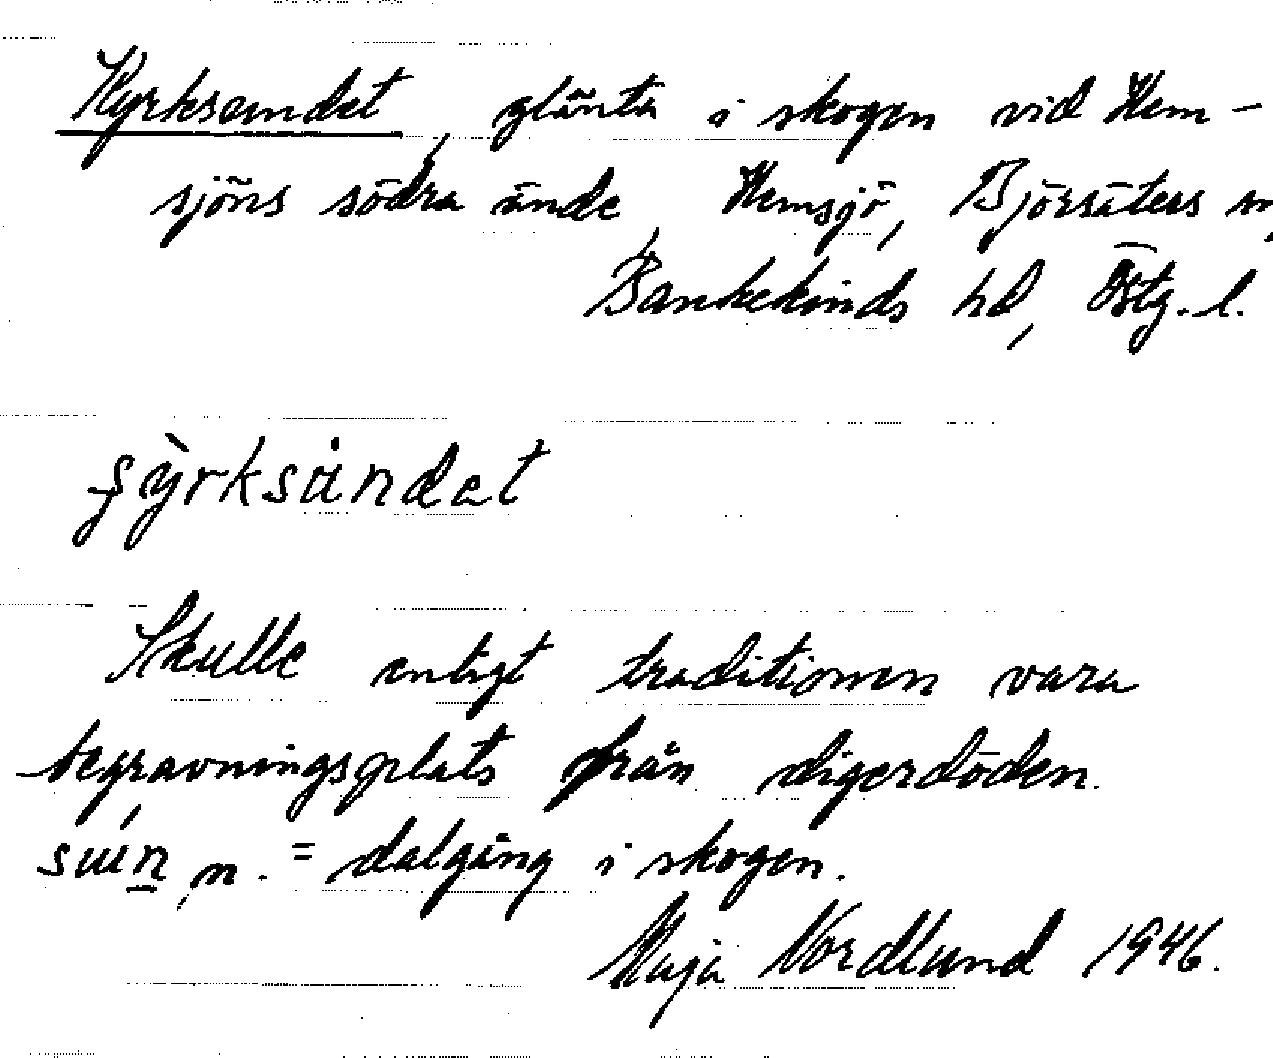 Kyrksandet, glänta i skogen vid Hem-
sjöns södra ände, Hemsjö, Björsäters sn,
Bankekinds hd, Östg.l.
Skulle enligt traditionen vara
begravningsplats från digerdöden.
n. = dalgång i skogen.
Maja Nordlund 1946.